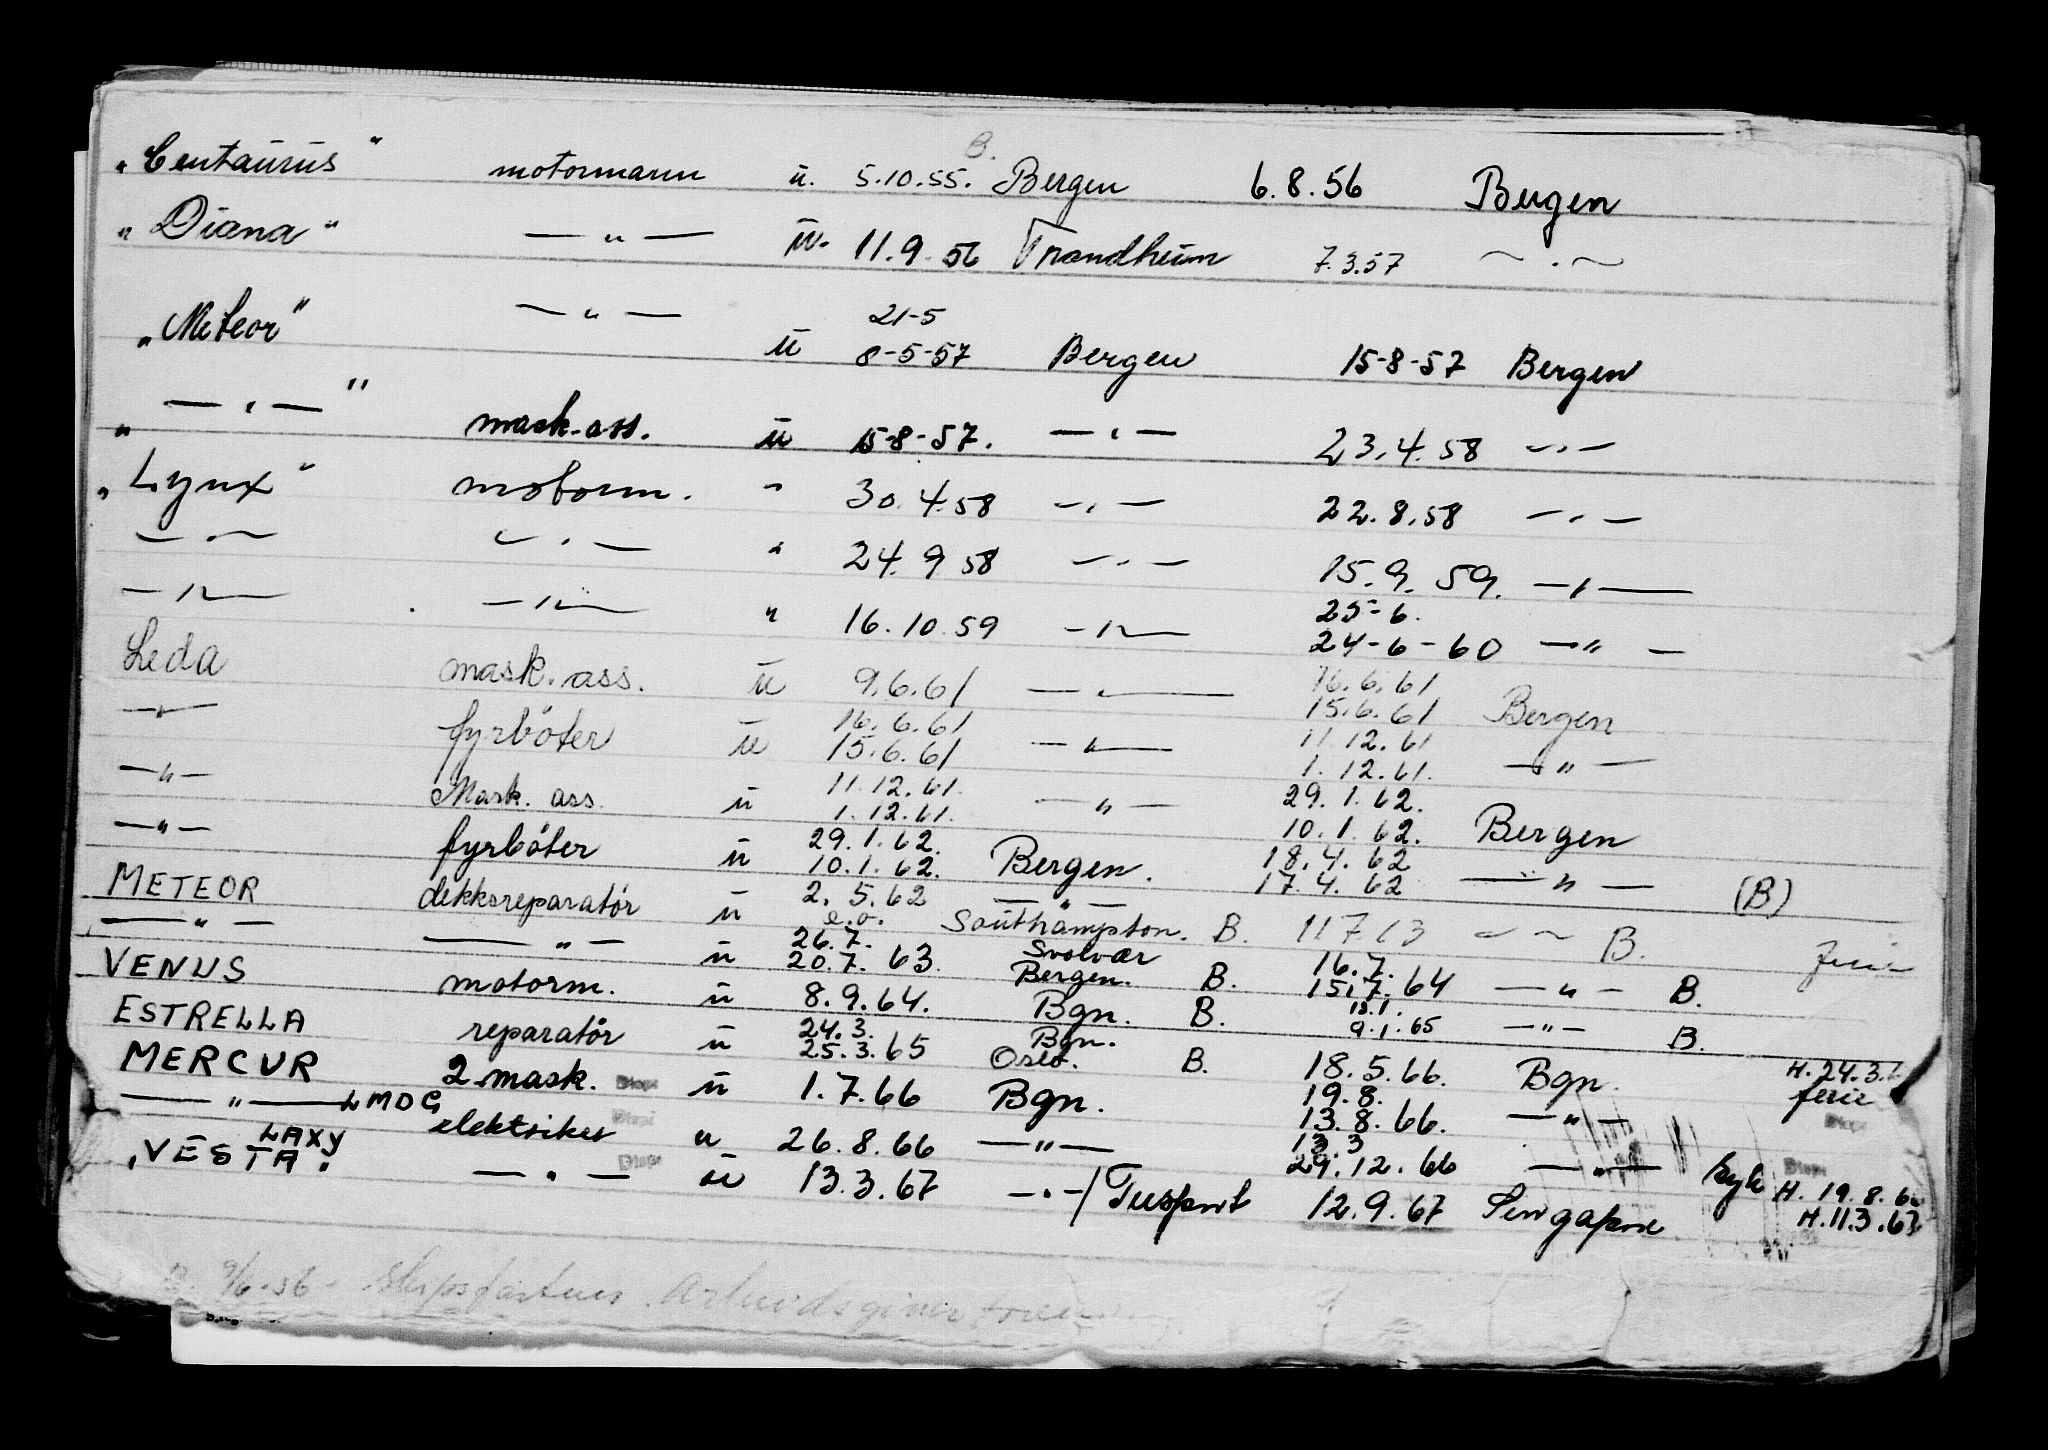 B.
„Centaurus" motormann u. 5.10.55. Bergen 6.8.56 Bergen
„Diana" —"— u. 11.9.56 Trondheim 7.3.57 —"—
„Meteor" —"— 21-5
u 8-5-57 Bergen 15-8-57 Bergen
„—"—" mask.ass. u 15-8-57. —"— 23.4.58 —"—
„Lynx" motorm. " 30.4.58 —"— 22.8.58 —"—
—"— —"— " 24.9.58 —"— 15.9.59. —"—
25-6.
—"— —"— " 16.10.59 —"— 24-6-60 —"—
16.6.61
Leda mask.ass. u 9.6.61 —"— 15.6.61 Bergen
16.6.61 11.12.61
—"— fyrböter u 15.6.61 —"— 1.12.61. —"—
11.12.61. 29.1.62.
—"— Mask. ass. u 1.12.61. —"— 10.1.62. Bergen
29.1.62. 18.4.62
—"— fyrböter u 10.1.62. Bergen. 17.4.62 —"— (B)
2.5.62 —"—
METEOR dekksreparatör u e.o. Southampton. B. 11 7 63 —"— B. ferie
26.7. Svolvær 16.7.
—"— —"— u 20.7.63 Bergen. B. 15.7.64 —"— B.
VENUS motorm. u 8.9.64. Bgn. B. 9.1.65 —"— B.
24.3. Bgn.
ESTRELLA reparatör u 25.3.65 Oslo. B. 18.5.66. Bgn. H. 24.3.
19.8. ferie
MERCUR 2.mask. u 1.7.66 Bgn. 13.8.66. —"—
13.3
—"— LMDG elektriker u 26.8.66 —"— 29.12.66 —"— syk H. 19.8.6
LAXY
„VESTA" —"— u 13.3.67 —"—/ 12.9.67 Singapore H.11.3.67
9/6-56 - Skipsfartens Arbeidsgiverforening